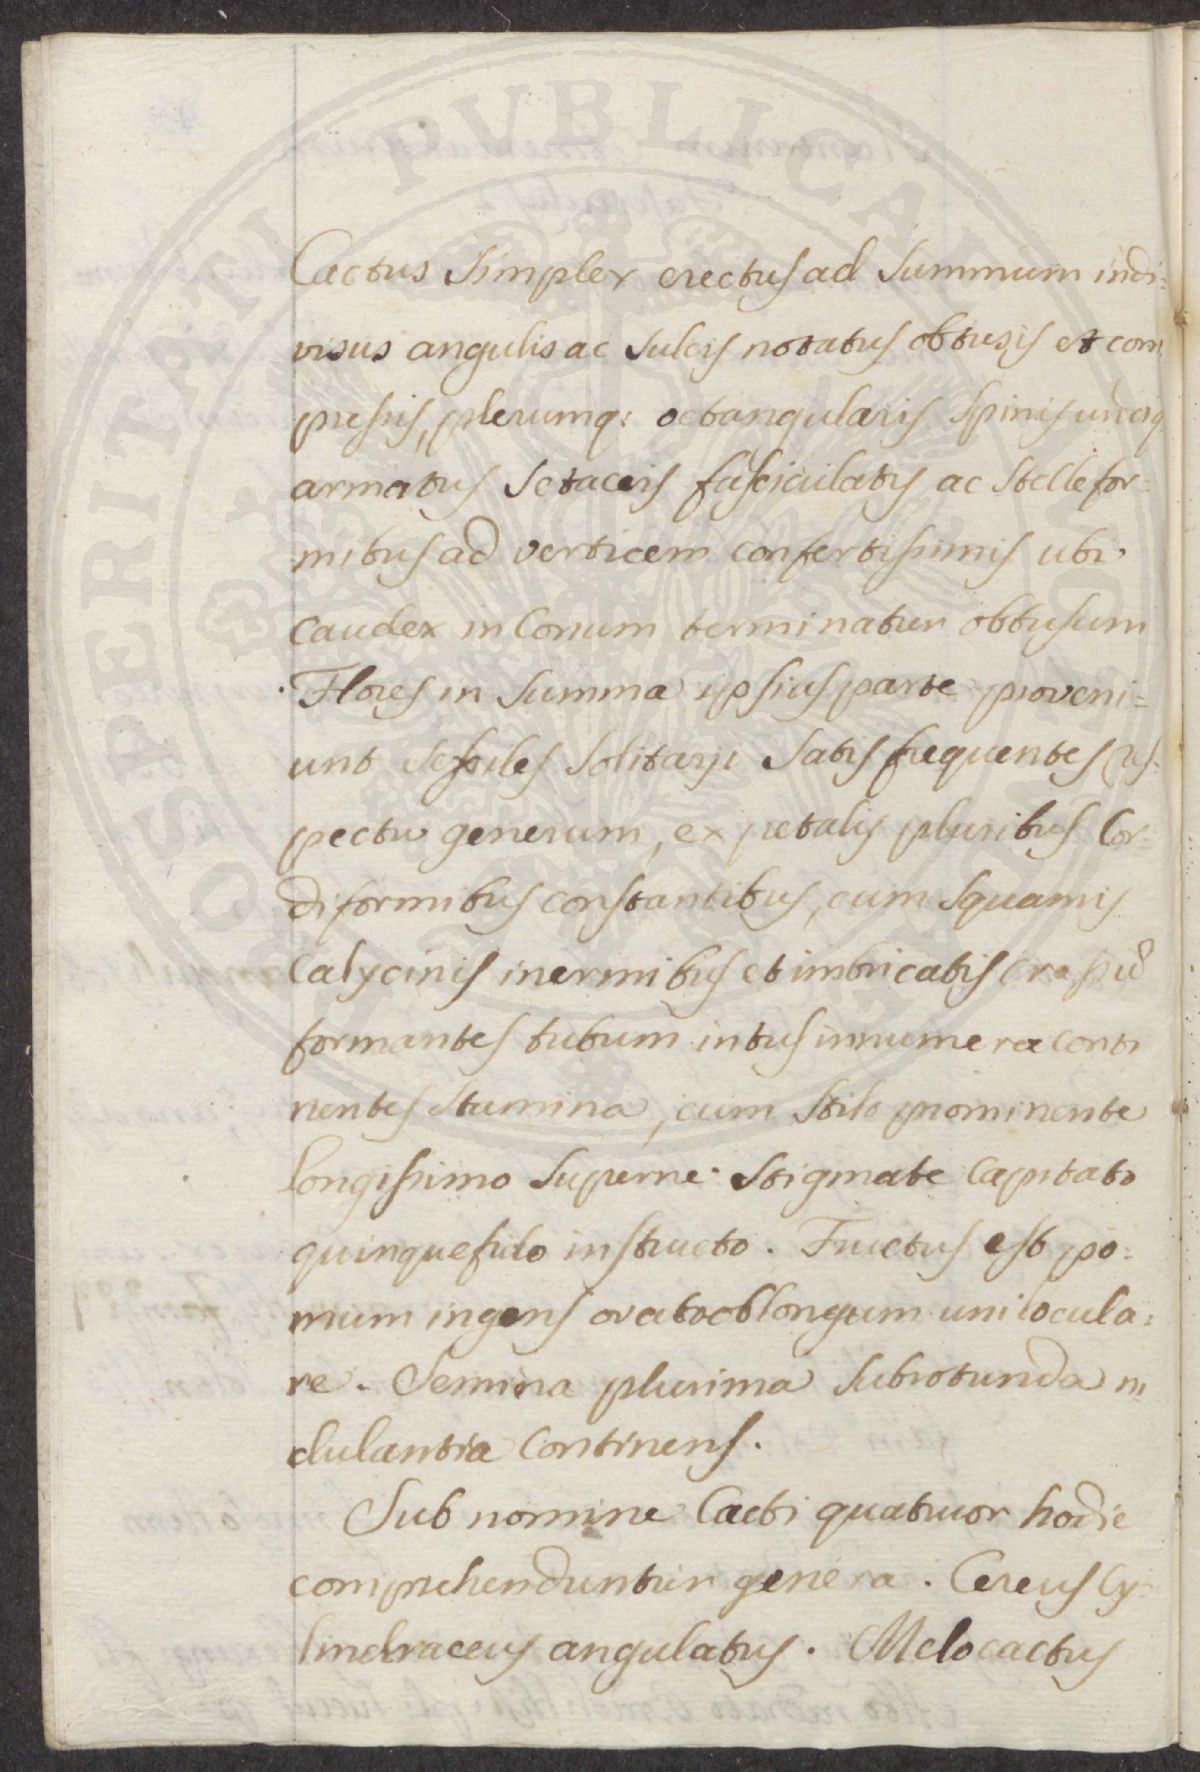 Cactus simplex erectus ad summum indi=
visus angulis ac sulcis notatus obtusis et com
pressis, plerumq: octangularis spinis
armatus setaceis fasciculatis ac stellefor=
mibus ad verticem confertissimis ubi
caudex in Conum terminatur obtusum
. Flores in summa ipsius parte proveni=
unt sessiles solitarji satis frequentes res=
pectu generum, ex petalis pluribus Cor=
diformibus constantibus, cum squamis
calycinis inermibus et imbricatis
formantes tubum intus innumera conti
nentes stamina, cum stilo prominente
longissimo superne. stigmate capitato
quinquefido instructo. Fructus est po=
mum ingens ovatooblongum unilocula=
re. Semina plurima subrotunda ni
dulantia continens.
Sub nomine Cacti quatuor hodie
comprehenduntur genera. Cereus Cy=
lindraceus angulatus. Melocactus
OSPERITATI PVBLICAE